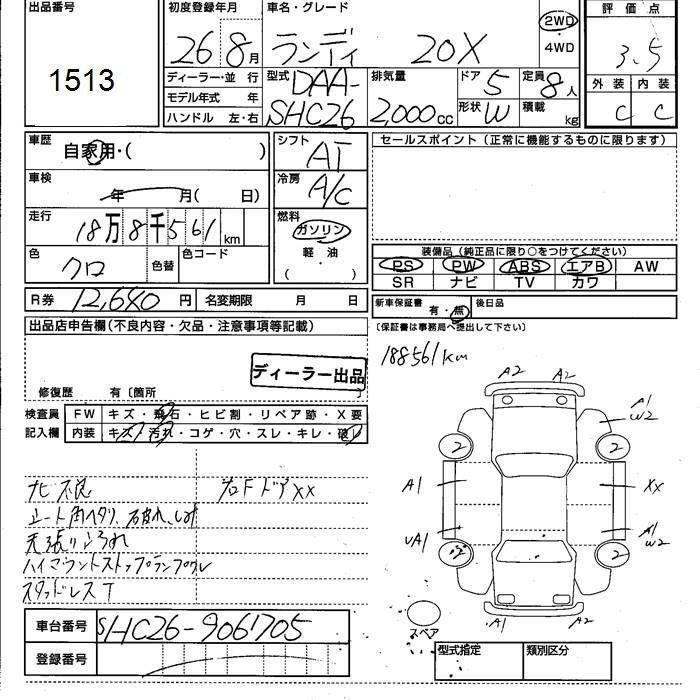 出品番号
1513
初度登録年月
26 8月
車名・グレード
ランディ 20X
2WD
・
4WD
評価点
3.5
ディーラー・並 行
モデル年式 年
ハンドル 左・右
型式
DAA-
SHC26
排気量
2,000cc
ドア
5
形状 W
定員
8人
積載
kg
外装 内装
C C
車歴
自家用・( )
シフト
AT
セールスポイント (正常に機能するものに限ります)
車検
年 月( 日)
冷房
A/C
走行
18万8千561km
燃料
ガソリン
軽油
( )
色
クロ
色替
色コード
装備品 (純正品に限り○をつけてください)
PS PW ABS エアB AW
SR ナビ TV カワ
R券 12,640 円
名変期限 月 日
新車保証書
有・無
後日品
(保証書は事務局へ提出して下さい)
出品店申告欄(不良内容・欠品・注意事項等記載)
188561km
ディーラー出品
修復歴 有〔箇所 〕
検査員
記入欄
FW キズ・飛石・ヒビ割・リペア跡・X要
内装 キズ・汚れ・コゲ・穴・スレ・キレ・破レ
A2 A2
A1
W2
2 2
A1 XX
UA1
A1
W2
2 2
A1 A2
スペア
ナビ不良
ハイマウントストップランプワレ
スタッドレスT
車台番号 SHC26-9061705
登録番号
型式指定 類別区分